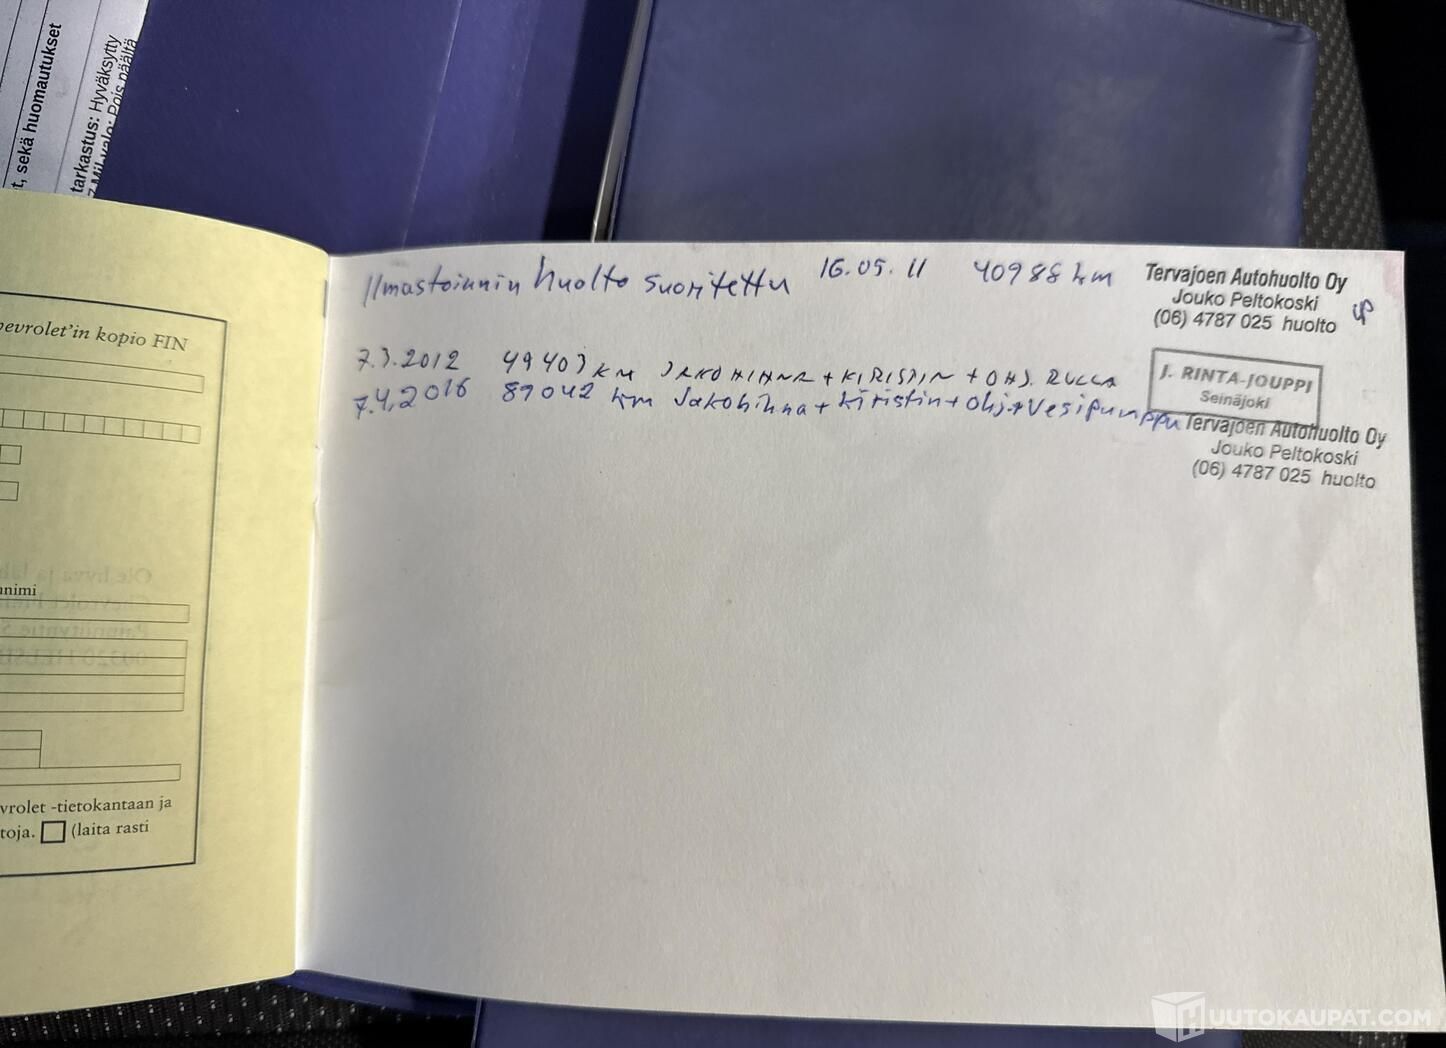 , sekä huomautukset
tarkastus: Hyväksytty
Pois päältä
evrolet'in kopio FIN
nimi
vrolet -tietokantaan ja
toja. (laita rasti
Ilmastoinnin huolto suoritettu 16.05.11 40988 km
Tervajoen Autohuolto Oy
Jouko Peltokoski
(06) 4787 025 huolto
7.3.2012 49403 KM JAKOHIHNA + KIRISTIN + OHJ. RULLA
J. RINTA-JOUPPI
Seinäjoki
7.4.2016 89042 km Jakohihna + kiristin + ohj. + Vesipumppu
Tervajoen Autohuolto Oy
Jouko Peltokoski
(06) 4787 025 huolto
HUUTOKAUPAT.COM